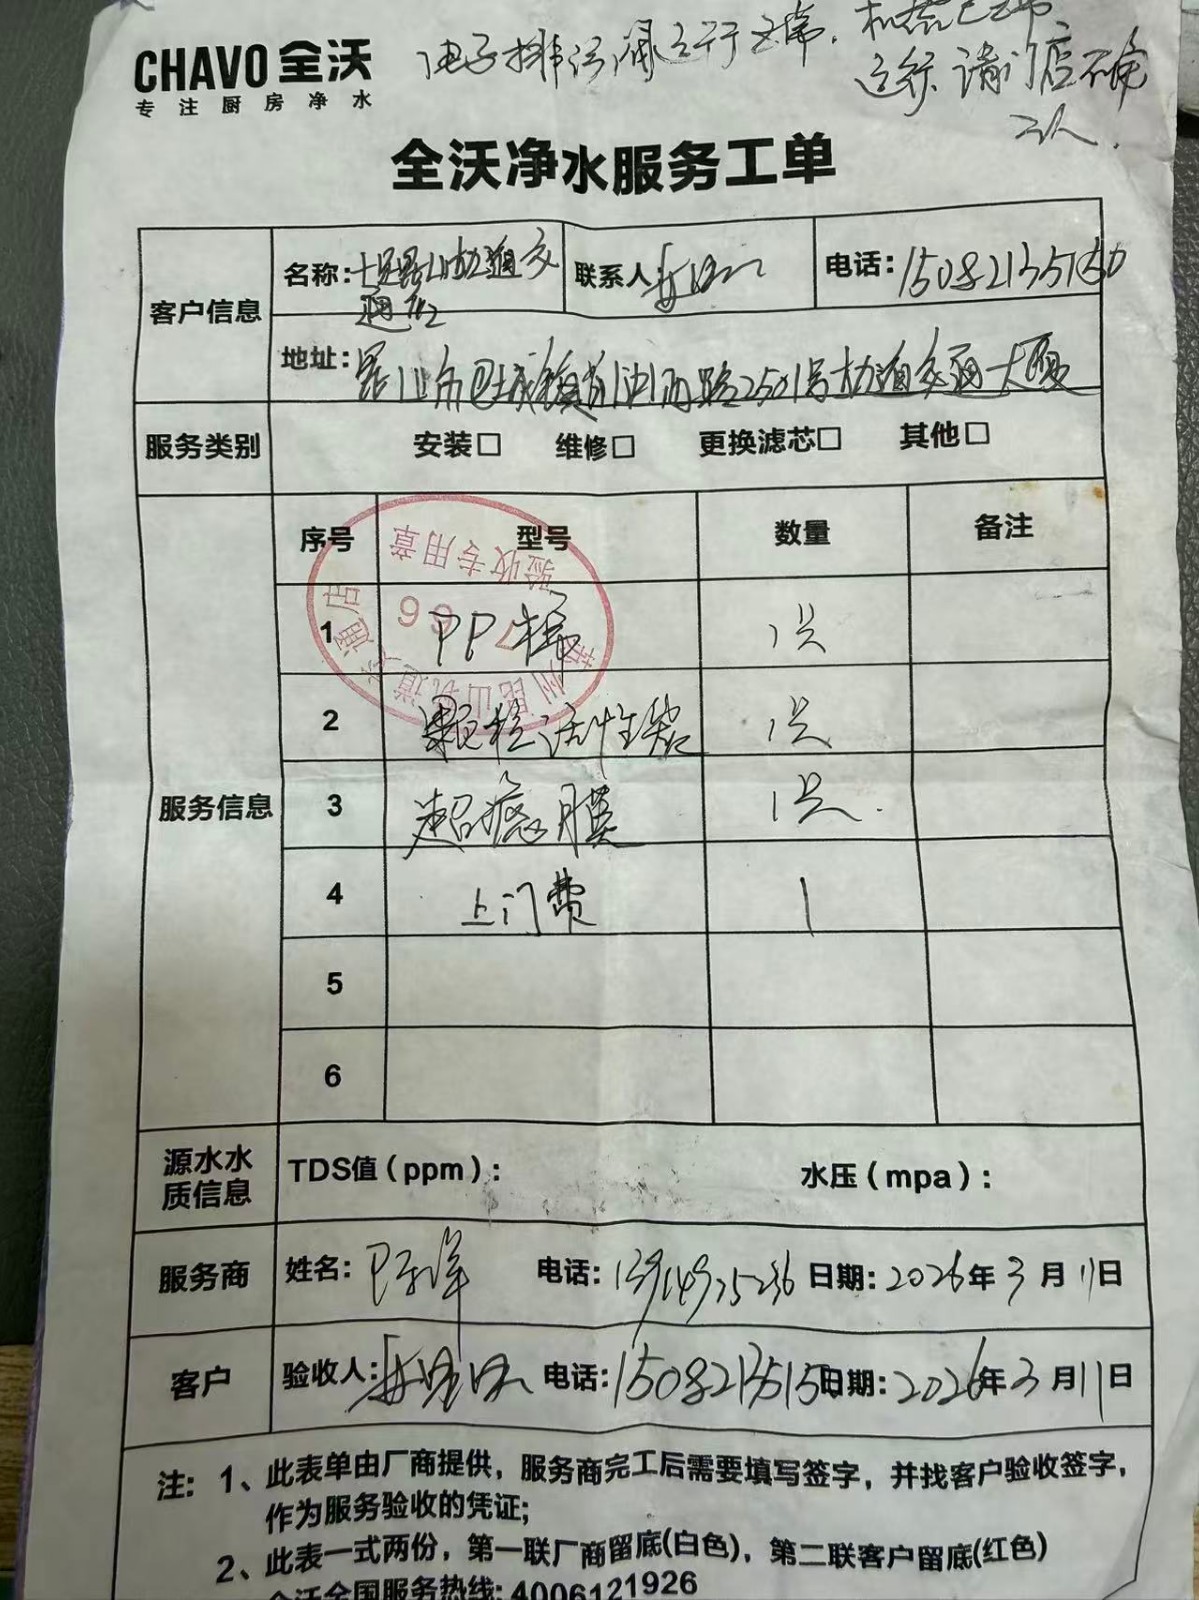 电子排污阀运行正常. 机器已正常
运行. 请门店确
认.
CHAVO 全沃
专注厨房净水
全沃净水服务工单
客户信息
名称: 昆山 交
通店
联系人
电话: 15082135150
地址: 昆山市巴城镇 路2501号 交通大厦
服务类别 安装□ 维修□ 更换滤芯□ 其他□
服务信息
序号 型号 数量 备注
1 PP棉 1只
2 颗粒活性炭 1只
3 超滤膜 1只.
4 上门费 1
5
6
验收专用章
源水水质信息
TDS值(ppm): 水压(mpa):
服务商 姓名: 电话: 日期: 2026年3月11日
客户 验收人: 电话: 15082135150 日期: 2026年3月11日
注: 1、此表单由厂商提供，服务商完工后需要填写签字，并找客户验收签字，
作为服务验收的凭证;
2、此表一式两份，第一联厂商留底(白色)，第二联客户留底(红色)
全沃全国服务热线: 4006121926